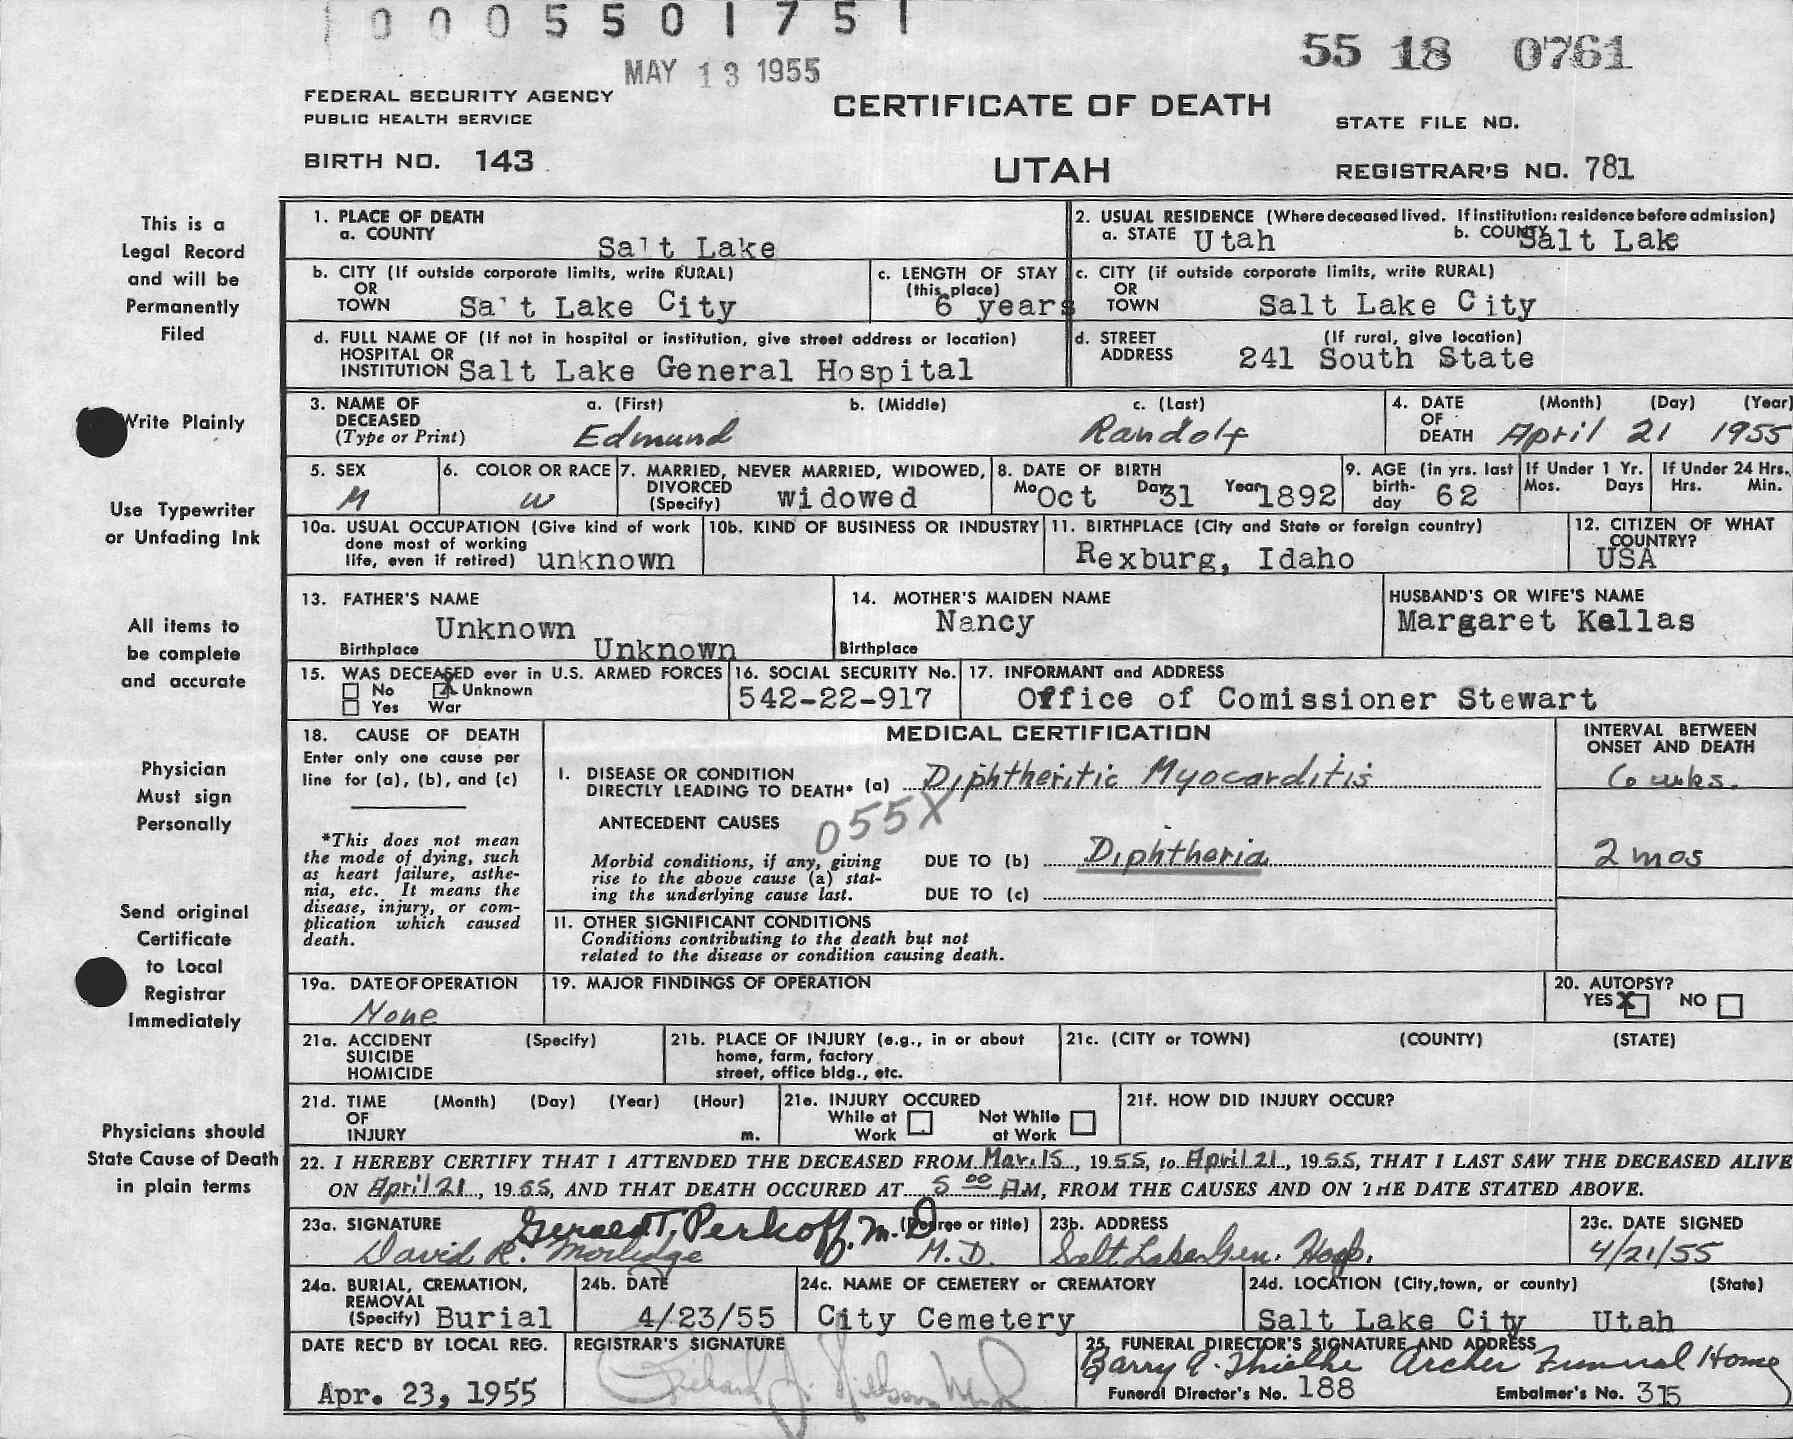 0 0 0 5 5 0 1 7 5 1
MAY 13 1955
55 18 0761
FEDERAL SECURITY AGENCY
PUBLIC HEALTH SERVICE
CERTIFICATE OF DEATH
STATE FILE NO.
BIRTH NO. 143
UTAH
REGISTRAR'S NO. 781
This is a
Legal Record
and will be
Permanently
Filed
Write Plainly
Use Typewriter
or Unfading Ink
All items to
be complete
and accurate
Physician
Must sign
Personally
Send original
Certificate
to Local
Registrar
Immediately
Physicians should
State Cause of Death
in plain terms
1. PLACE OF DEATH
a. COUNTY
Salt Lake
2. USUAL RESIDENCE (Where deceased lived. If institution: residence before admission)
a. STATE Utah b. COUNTY Salt Lake
b. CITY (If outside corporate limits, write RURAL)
OR
TOWN Salt Lake City
c. LENGTH OF STAY
(this place)
6 years
c. CITY (if outside corporate limits, write RURAL)
OR
TOWN Salt Lake City
d. FULL NAME OF (If not in hospital or institution, give street address or location)
HOSPITAL OR
INSTITUTION Salt Lake General Hospital
d. STREET (If rural, give location)
ADDRESS 241 South State
3. NAME OF DECEASED (Type or Print)
a. (First) b. (Middle) c. (Last)
Edmund Randolf
4. DATE OF DEATH (Month) (Day) (Year)
April 21 1955
5. SEX
M
6. COLOR OR RACE
W
7. MARRIED, NEVER MARRIED, WIDOWED,
DIVORCED
(Specify) widowed
8. DATE OF BIRTH
Mo Oct Day 31 Year 1892
9. AGE (in yrs. last
birth-
day 62
If Under 1 Yr.
Mos. Days
If Under 24 Hrs.
Hrs. Min.
10a. USUAL OCCUPATION (Give kind of work
done most of working
life, even if retired) unknown
10b. KIND OF BUSINESS OR INDUSTRY
11. BIRTHPLACE (City and State or foreign country)
Rexburg, Idaho
12. CITIZEN OF WHAT
COUNTRY?
USA
13. FATHER'S NAME
Unknown
Birthplace Unknown
14. MOTHER'S MAIDEN NAME
Nancy
Birthplace
HUSBAND'S OR WIFE'S NAME
Margaret Kellas
15. WAS DECEASED ever in U.S. ARMED FORCES
No X Unknown
Yes War
16. SOCIAL SECURITY No.
542-22-917
17. INFORMANT and ADDRESS
Office of Comissioner Stewart
18. CAUSE OF DEATH
Enter only one cause per
line for (a), (b), and (c)
*This does not mean
the mode of dying, such
as heart failure, asthe-
nia, etc. It means the
disease, injury, or com-
plication which caused
death.
MEDICAL CERTIFICATION
INTERVAL BETWEEN
ONSET AND DEATH
I. DISEASE OR CONDITION
DIRECTLY LEADING TO DEATH* (a) Diphtheritic Myocarditis
6 wks.
ANTECEDENT CAUSES
055X
Morbid conditions, if any, giving
rise to the above cause (a) stat-
ing the underlying cause last.
DUE TO (b) Diphtheria
2 mos
DUE TO (c)
II. OTHER SIGNIFICANT CONDITIONS
Conditions contributing to the death but not
related to the disease or condition causing death.
19a. DATE OF OPERATION
None
19. MAJOR FINDINGS OF OPERATION
20. AUTOPSY?
YES X NO
21a. ACCIDENT (Specify)
SUICIDE
HOMICIDE
21b. PLACE OF INJURY (e.g., in or about
home, farm, factory
street, office bldg., etc.
21c. (CITY or TOWN) (COUNTY) (STATE)
21d. TIME (Month) (Day) (Year) (Hour)
OF
INJURY m.
21e. INJURY OCCURED
While at Work Not While at Work
21f. HOW DID INJURY OCCUR?
22. I HEREBY CERTIFY THAT I ATTENDED THE DECEASED FROM Mar. 15, 1955, to April 21, 1955, THAT I LAST SAW THE DECEASED ALIVE
ON April 21, 1955, AND THAT DEATH OCCURED AT 5 00 AM, FROM THE CAUSES AND ON THE DATE STATED ABOVE.
23a. SIGNATURE (Degree or title)
Gerald T. Perkoff, M.D.
David R. Morledge M.D.
23b. ADDRESS
Salt Lake Gen. Hosp.
23c. DATE SIGNED
4/21/55
24a. BURIAL, CREMATION,
REMOVAL
(Specify) Burial
24b. DATE
4/23/55
24c. NAME OF CEMETERY or CREMATORY
City Cemetery
24d. LOCATION (City, town, or county) (State)
Salt Lake City Utah
DATE REC'D BY LOCAL REG.
Apr. 23, 1955
REGISTRAR'S SIGNATURE
25. FUNERAL DIRECTOR'S SIGNATURE AND ADDRESS
Barry A. Thielke Archer Funeral Home
Funeral Director's No. 188 Embalmer's No. 315